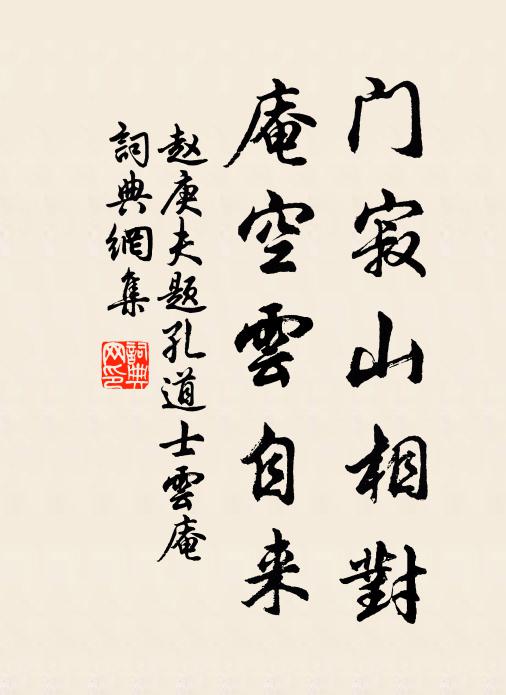 门寂山相對
庵空雲自来
赵庚夫题孔道士雲庵
詞典網集
詞典网印